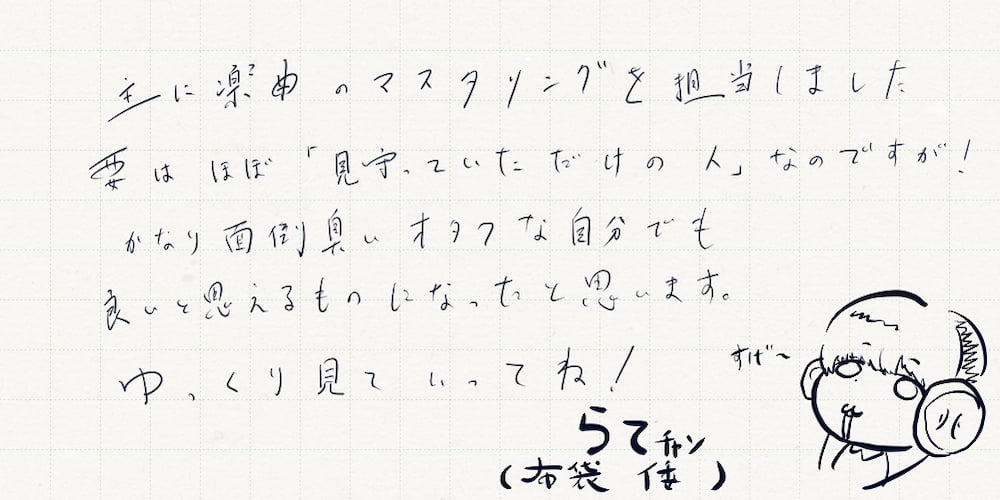 主に楽曲のマスタリングを担当しました
要はほぼ「見守っていただけの人」なのですが!
かなり面倒臭いオタクな自分でも
良いと思えるものになったと思います。
ゆっくり見ていってね!
すげ〜
らてチャン
(布袋 倭)